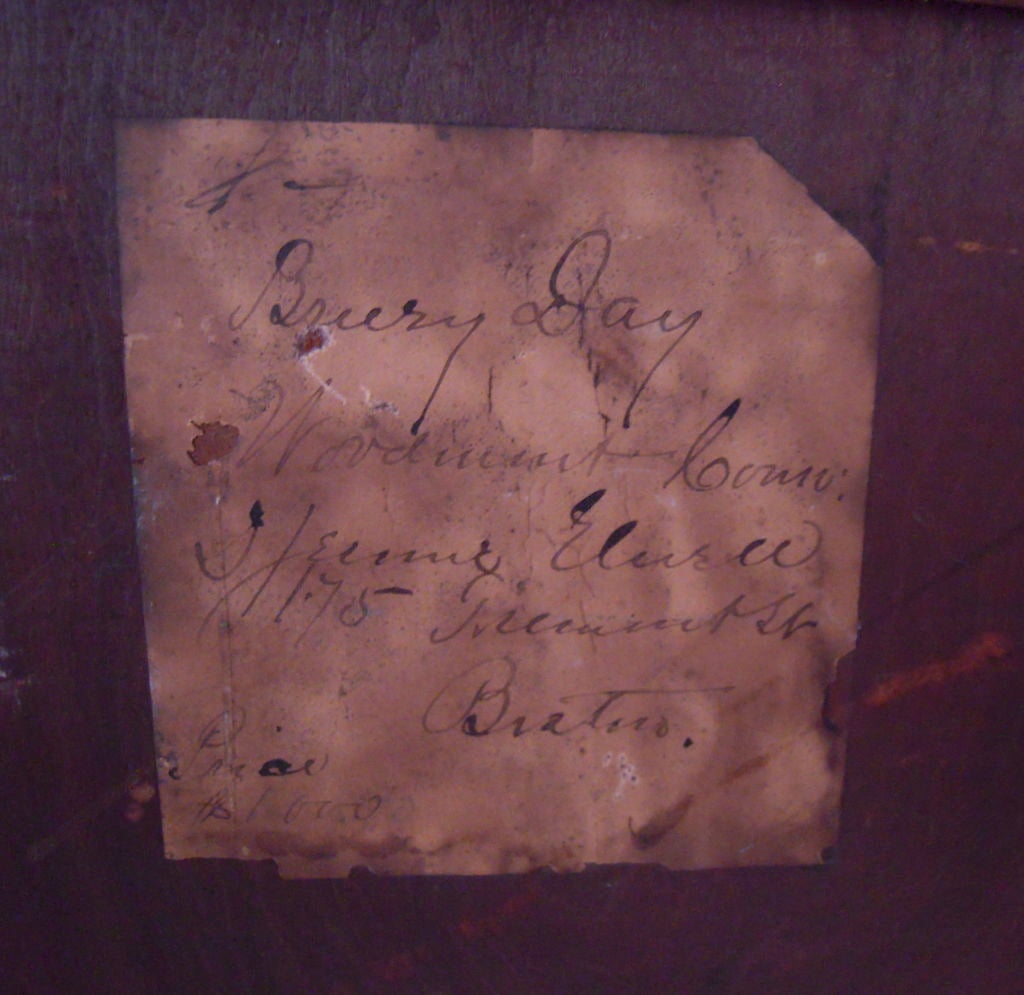 4 -
Breezy Day
Woodmont Conn:
D Jerome Elwell
175 Tremont St
Boston.
Price
$1000